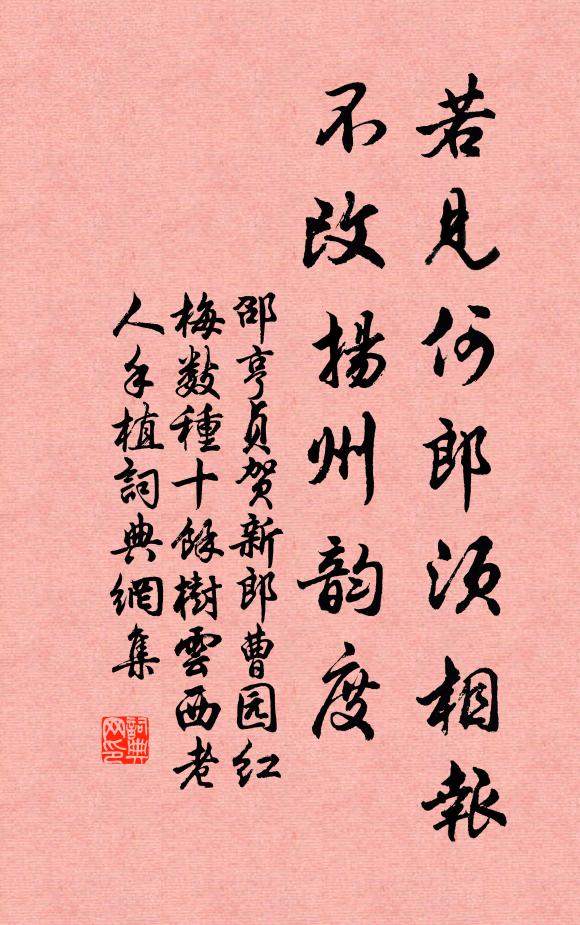 若見何郎須相報
不改揚州韵度
邵亨貞贺新郎曹园红
梅数種十餘樹雲西老
人手植詞典網集
詞典
网印